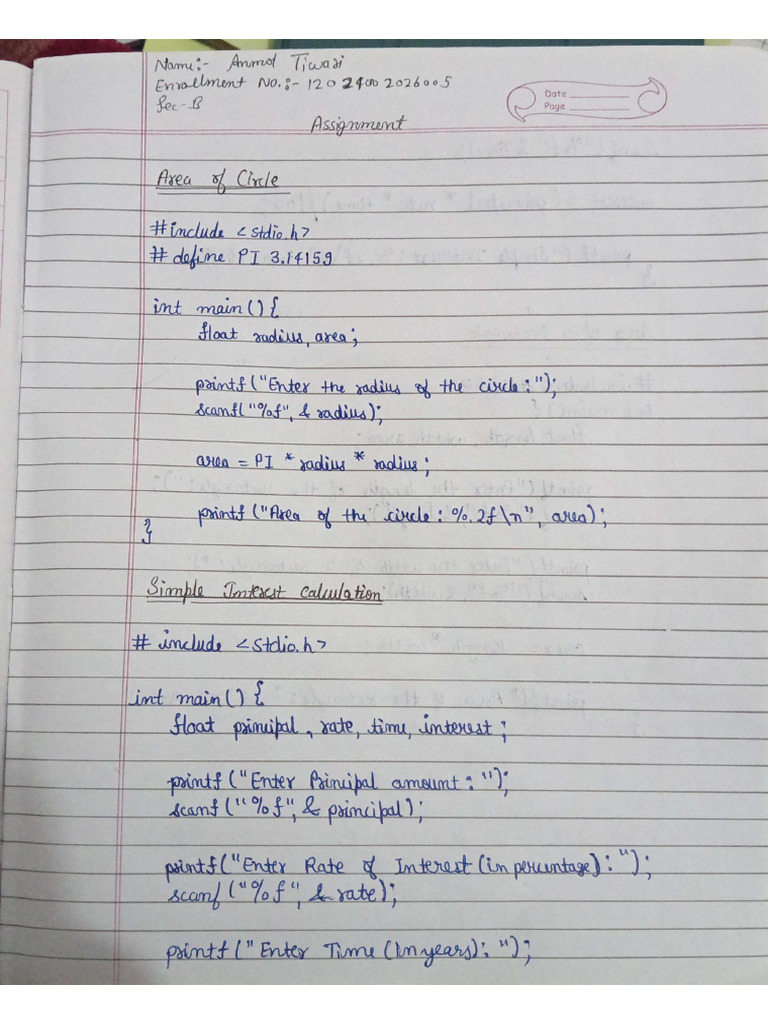 Name:- Anmol Tiwari
Enrollment No.:- 12024002026005
Sec-B
Date
Page
Assignment
Area of Circle
#include <stdio.h>
# define PI 3.14159
int main() {
float radius, area;
printf("Enter the radius of the circle:");
scanf("%f", & radius);
area = PI * radius * radius;
printf("Area of the circle: %.2f\n", area);
}
Simple Interest Calculation
# include <stdio.h>
int main() {
float principal, rate, time, interest;
printf("Enter Principal amount: ");
scanf("%f", & principal);
printf("Enter Rate of Interest (in percentage): ");
scanf("%f", & rate);
printf("Enter Time (In years): ");